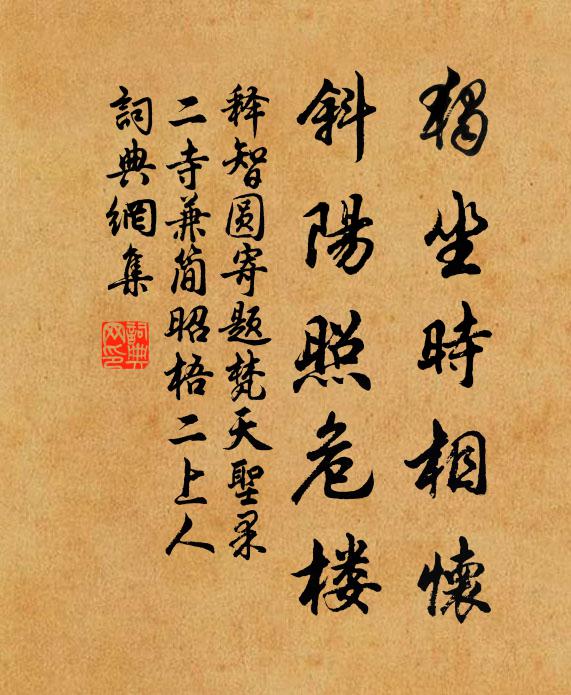 獨坐時相懷
斜陽照危楼
释智圆寄題梵天聖果
二寺兼简昭梧二上人
詞典網集
詞典网印